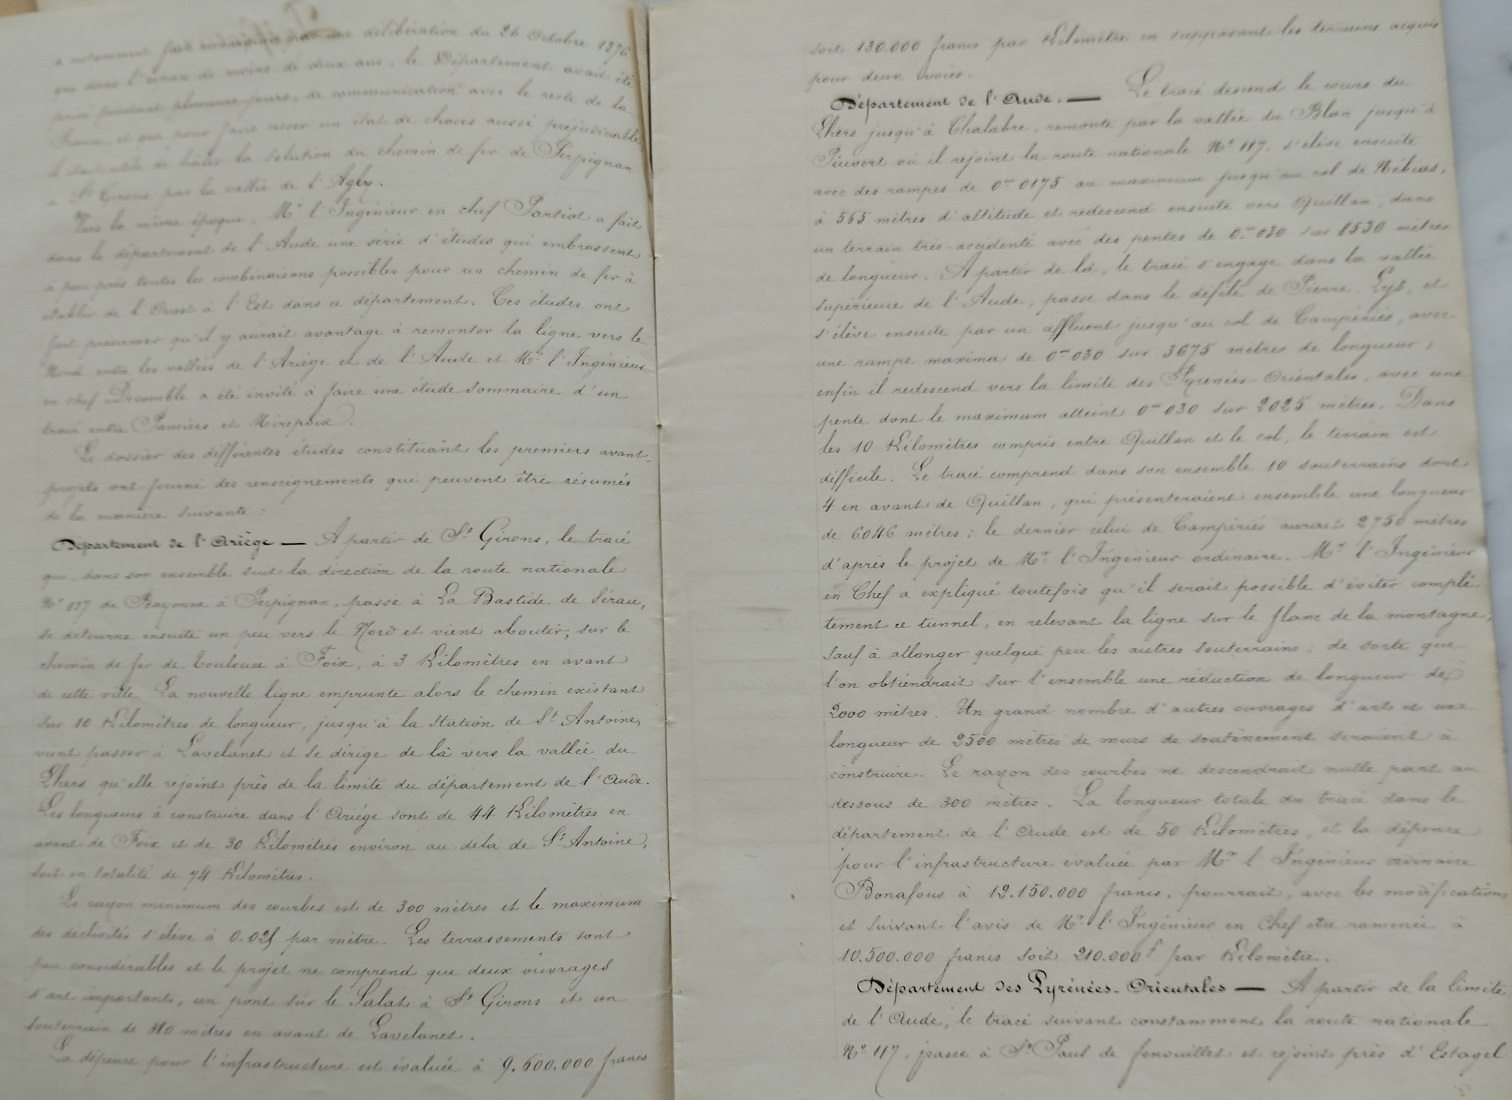 a notamment fait                délibération du 26 Octobre 1876
que dans l'espace de moins de deux ans, le Département avait été
privé pendant plusieurs jours, de communication avec le reste de la
France, et que pour faire cesser un état de choses aussi préjudiciable
il était utile de hâter la solution du chemin de fer de Perpignan
à St Girons par la vallée de l'Agly.
Vers la même époque, Mr l'Ingénieur en chef Partiot a fait
dans le département de l'Aude une série d'études qui embrassent
à peu près toutes les combinaisons possibles pour un chemin de fer à
établir de l'Ouest à l'Est dans ce département. Ces études ont
fait présumer qu'il y aurait avantage à remonter la ligne vers le
Nord, entre les vallées de l'Ariège et de l'Aude et Mr l'Ingénieur
en chef Decomble a été invité à faire une étude sommaire d'un
tracé entre Pamiers et Mirepoix.
Le dossier des différentes études constituant les premiers avant-
projets ont fourni des renseignements qui peuvent être résumés
de la manière suivante :
Département de l'Ariège — A partir de St Girons, le tracé
qui, dans son ensemble suit la direction de la route nationale
No 117 de Bayonne à Perpignan, passe à La Bastide de Sérou,
se détourne ensuite un peu vers le Nord et vient aboutir, sur le
chemin de fer de Toulouse à Foix, à 3 Kilomètres en avant
de cette ville. La nouvelle ligne emprunte alors le chemin existant
sur 10 Kilomètres de longueur, jusqu'à la station de St Antoine,
vient passer à Lavelanet et se dirige de là vers la vallée du
Lhers qu'elle rejoint près de la limite du département de l'Aude.
Les longueurs à construire dans l'Ariège sont de 44 Kilomètres en
avant de Foix et de 30 Kilomètres environ au-delà de St Antoine,
soit en totalité de 74 Kilomètres.
Le rayon minimum des courbes est de 300 mètres et le maximum
des déclivités s'élève à 0.025 par mètre. Les terrassements sont
peu considérables et le projet ne comprend que deux ouvrages
d'art importants, un pont sur le Salat à St Girons et un
souterrain de       mètres en avant de Lavelanet.
La dépense pour l'infrastructure est évaluée à 9.600.000 francs
soit 130.000 francs par Kilomètre en supposant les terrains acquis
pour deux voies.
Département de l'Aude. — Le tracé descend le cours du
Lhers jusqu'à Chalabre, remonte par la vallée du Blau jusqu'à
Puivert où il rejoint la route nationale No 117, s'élève ensuite
avec des rampes de 0m 0175 au maximum jusqu'au col de Nébias,
à 565 mètres d'altitude et redescend ensuite vers Quillan, dans
un terrain très-accidenté avec des pentes de 0m 030 sur 1530 mètres
de longueur. A partir de là, le tracé s'engage dans la vallée
supérieure de l'Aude, passe dans le défilé de Pierre Lys, et
s'élève ensuite par un affluent jusqu'au col de Campériés, avec
une rampe maxima de 0m 030 sur 3675 mètres de longueur ;
enfin il redescend vers la limite des Pyrénées Orientales, avec une
pente dont le maximum atteint 0m 030 sur 2025 mètres. Dans
les 10 Kilomètres compris entre Quillan et le col, le terrain est
difficile. Le tracé comprend dans son ensemble 10 souterrains dont
4 en avant de Quillan, qui présenteraient ensemble une longueur
de 6046 mètres ; le dernier celui de Campériés aurait 2750 mètres
d'après le projet de Mr l'Ingénieur ordinaire. Mr l'Ingénieur
en Chef a expliqué toutefois qu'il serait possible d'éviter complè-
tement ce tunnel, en relevant la ligne sur le flanc de la montagne,
sauf à allonger quelque peu les autres souterrains ; de sorte que
l'on obtiendrait sur l'ensemble une réduction de longueur de
2000 mètres. Un grand nombre d'autres ouvrages d'art et une
longueur de 2500 mètres de murs de soutènement seraient à
construire. Le rayon des courbes ne descendrait nulle part au
dessous de 300 mètres. La longueur totale du tracé dans le
département de l'Aude est de 50 Kilomètres, et la dépense
pour l'infrastructure évaluée par Mr l'Ingénieur ordinaire
Bonafous à 12.150.000 francs, pourrait, avec les modifications
et suivant l'avis de Mr l'Ingénieur en Chef être ramenée à
10.500.000 francs soit 210.000f par Kilomètre.
Département des Pyrénées-Orientales — A partir de la limite
de l'Aude, le tracé suivant constamment la route nationale
No 117, passe à St Paul de fenouillet et rejoint près d'Estagel